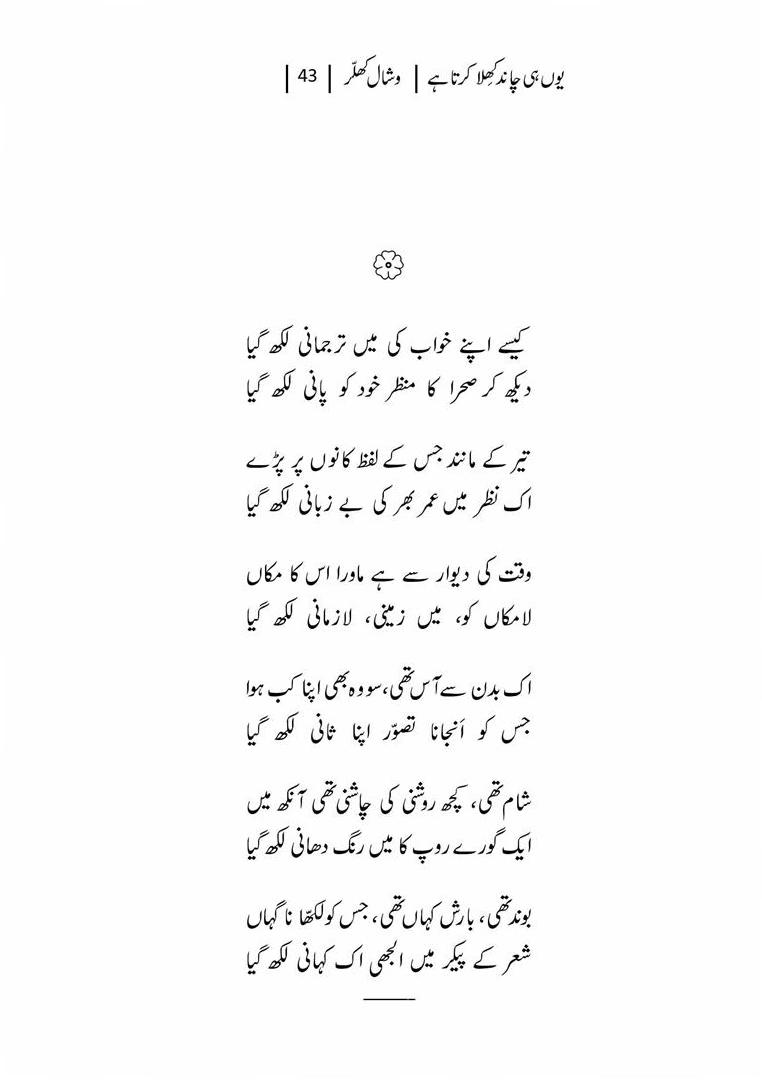 یوں ہی چاند کھِلا کرتا ہے | وشال کھلّر | 43 |
کیسے اپنے خواب کی میں ترجمانی لکھ گیا
دیکھ کر صحرا کا منظر خود کو پانی لکھ گیا
تیر کے مانند جس کے لفظ کانوں پر پڑے
اک نظر میں عمر بھر کی بے زبانی لکھ گیا
وقت کی دیوار سے ہے ماورا اس کا مکاں
لامکاں کو، میں زمینی، لازمانی لکھ گیا
اک بدن سے آس تھی، سو وہ بھی اپنا کب ہوا
جس کو اَنجانا تصوّر اپنا ثانی لکھ گیا
شام تھی، کچھ روشنی کی چاشنی تھی آنکھ میں
ایک گورے روپ کا میں رنگ دھانی لکھ گیا
بوند تھی، بارش کہاں تھی، جس کو لکھّا ناگہاں
شعر کے پیکر میں الجھی اک کہانی لکھ گیا